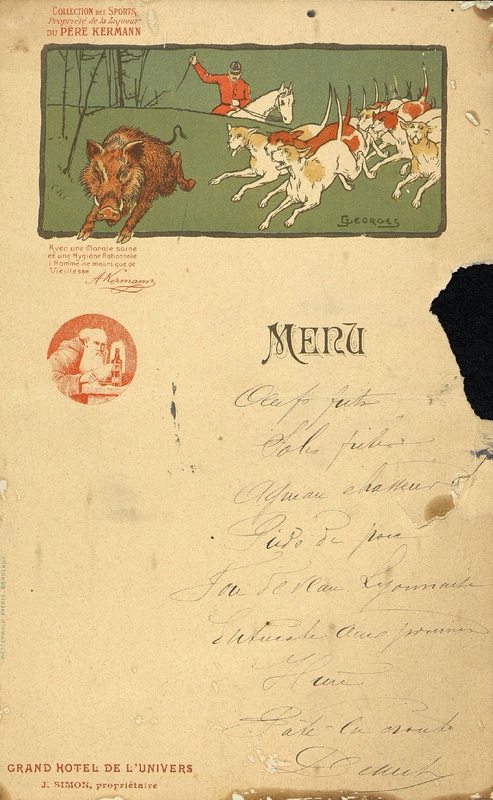 COLLECTION DES SPORTS
Propriété de la Liqueur
DU PÈRE KERMANN
GEORGES
Avec une Morale saine
et une Hygiène Rationnelle
l'Homme ne meurt que de
Vieillesse
A. Kermann
MENU
Oeufs frits
Sols frites
Agneau chasseur
Pieds de porc
Foie de Veau Lyonnaise
Entrecote aux pommes
Hure
Pâté en croute
Dessert
WETTERWALD FRÈRES, BORDEAUX
GRAND HOTEL DE L'UNIVERS
J. SIMON, propriétaire